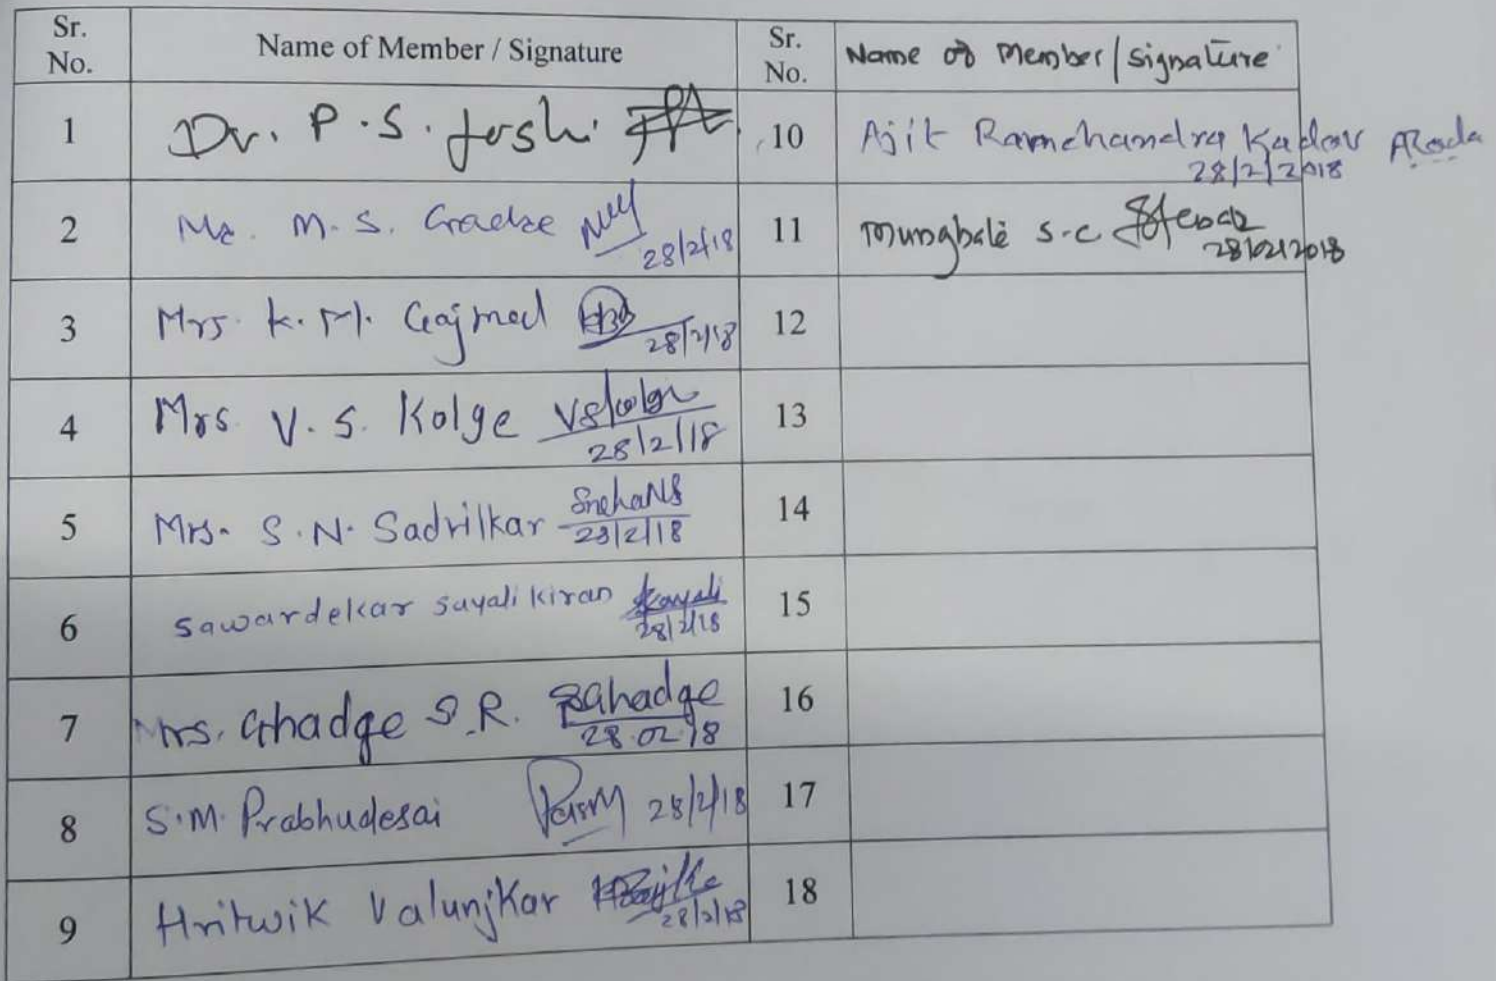 Sr. No. Name of Member / Signature Sr. No. Name of Member/Signature
1 Dr. P.S. Joshi 10 Ajit Ramchandra Kadav
28/2/2018
2 M. S. 28/2/18 11 S.C 28/02/2018
3 Mrs. K. M. 28/2/18 12
4 Mrs. V. S. Kolge 28/2/18 13
5 Mrs. S. N. Sadvilkar SnehaNS 28/2/18 14
6 Sawardekar Sayali Kiran Sayali 28/2/18 15
7 Mrs. Ghadge S.R. SGhadge 28.02.18 16
8 S.M. Prabhudesai 28/2/18 17
9 Hritwik Valunjkar 28/2/18 18